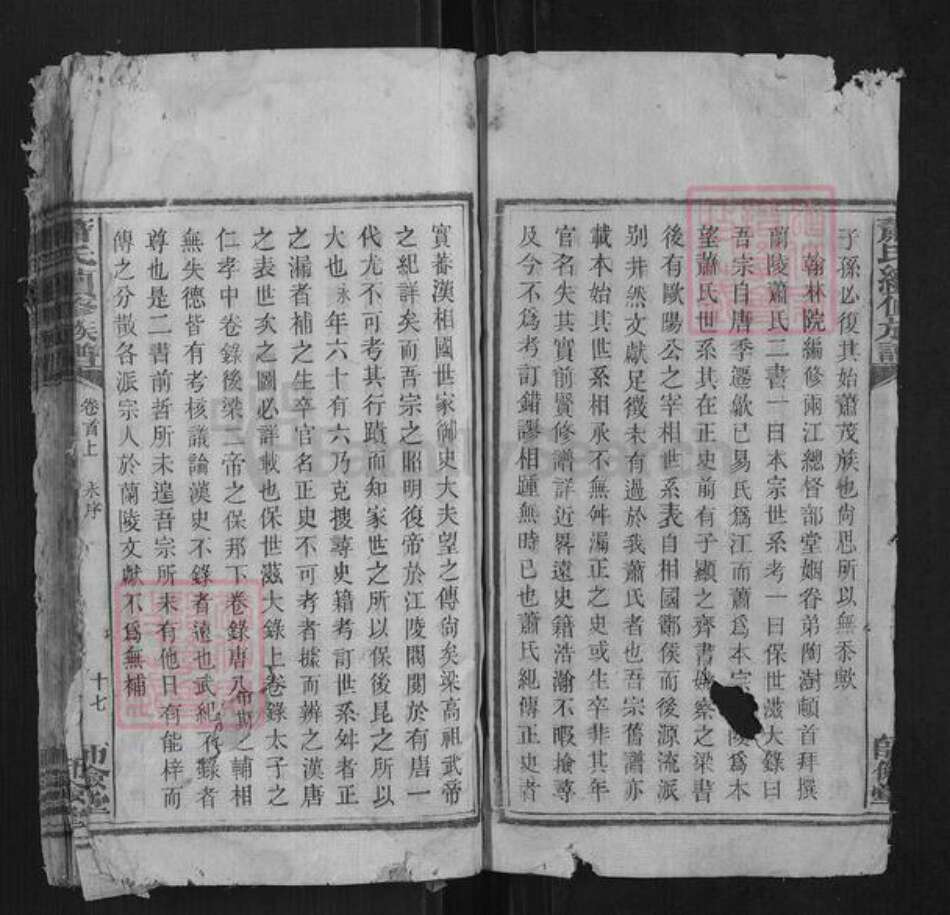 子孫必復其始蕭茂族也尙思所以無忝歟
翰林院編修兩江總督部堂姻眷弟陶澍頓首拜撰
蘭陵蕭氏二書一曰本宗世系考一曰保世滋大錄曰
吾宗自唐季遷歙已易氏爲江而蕭爲本宗 陵爲本
望蕭氏世系其在正史前有子顯之齊書姚察之梁書
後有歐陽公之宰相世系表自相國酇侯而後源流派
別井然文獻足徵未有過於我蕭氏者也吾宗舊譜亦
載本始其世系相承不無舛漏正之史或生卒非其年
官名失其實前賢修譜詳近畧遠史籍浩瀚不暇撿尋
及今不爲考訂錯謬相踵無時已也蕭氏紀傳正史者
實蕃漢相國世家御史大夫望之傳尙矣梁高祖武帝
之紀詳矣而吾宗之昭明復帝於江陵閥閱於有唐一
代尤不可考其行蹟而知家世之所以保後昆之所以
大也 年六十有六乃克搜尋史籍考訂世系舛者正
之漏者補之生卒官名正史不可考者據而辨之漢唐
之表世矣之圖必詳載也保世滋大錄上卷錄太子之
仁孝中卷錄後梁二帝之保邦下卷錄唐八 之輔相
無失德皆有考核議論漢史不錄者遠也武紀不錄者
尊也是二書前哲所未遑吾宗所未有他日有能梓而
傳之分散各派宗人於蘭陵文獻不爲無補
蕭氏續修族譜
卷首上
十七
師儉堂